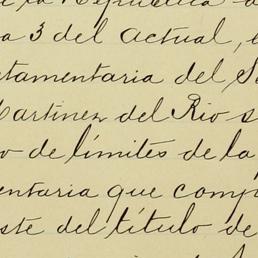 la República d
a 3 del actual, e
tamentaria del S
Martinez del Rio s
o de límites de la
entaria que comp
ste del título de